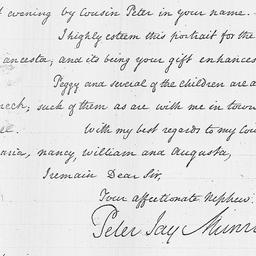 evening by Cousin Peter in your name.
I highly esteem this portrait for the
ancesta; and its being your gift enhances
Peggy and several of the children are a
such of them as are with me in town
With my best regards to my Cou
aria, nancy, william and Augusta,
I remain Dear Sir,
Your affectionate Nephew.
Peter Jay Munro